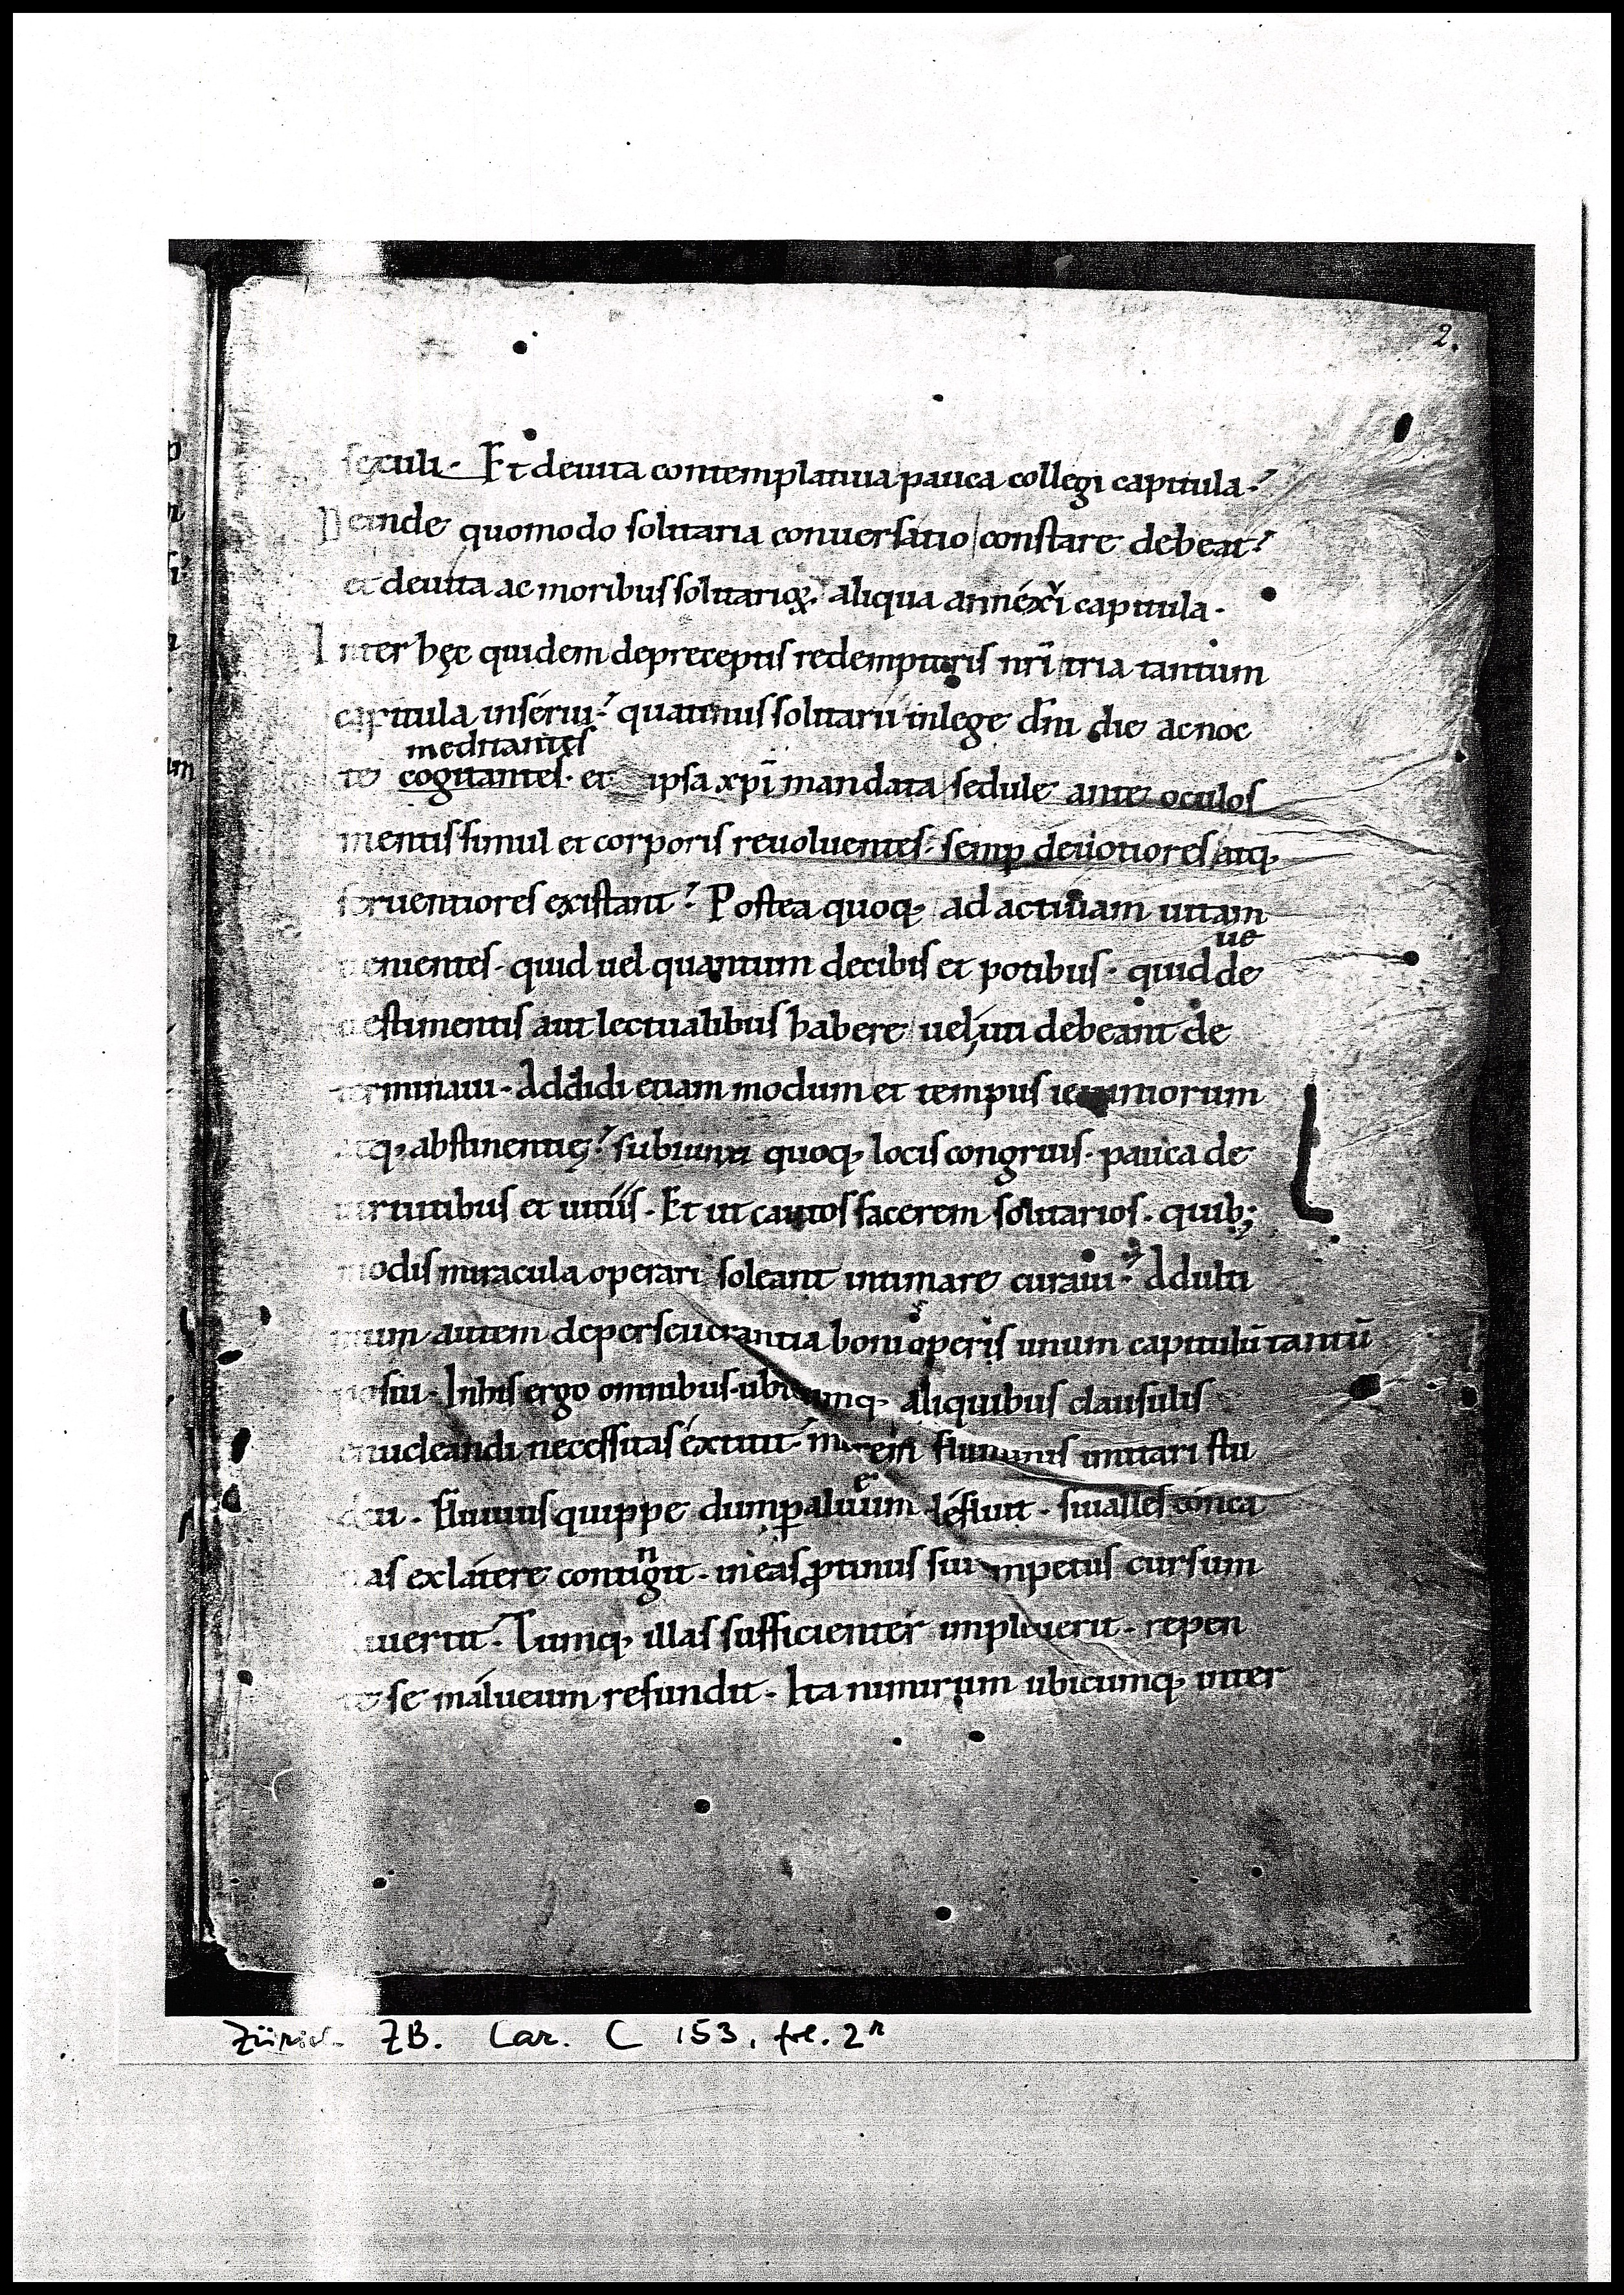 2.
sęculi · Et de uita contemplatiua pauca collegi capitula ·
Deinde quomodo solitaria conuersatio constare debeat ·
et de uita ac moribus solitarioꝝ, aliqua annéxi capitula ·
Inter hęc quidem de preceptis redemptoris nr̄i tria tantum
capitula inserui · quatinus solitarii in lege dn̄i die ac noc
meditantes
te cogitantes · et ipsa xp̄i mandata sedule ante oculos
mentis simul et corporis reuoluentes · semꝑ deuotiores atq;
feruentiores existant · Postea quoq; ad actiuam uitam
ue
uenientes · quid uel quantum de cibis et potibus · quid de
uestimentis aut lectualibus habere uel uti debeant de
terminaui · Addidi etiam modum et tempus ieiuniorum
atq; abstinentię · subiunxi quoq; locis congruis · pauca de
uirtutibus et uitiis · Et ut cautos facerem solitarios · quib;
modis miracula operari soleant intimare curaui · Ad ulti
mum autem de perseuerantia boni operis unum capitulū tantū
posui · In his ergo omnibus · ubicumq; aliquibus clausulis
enucleandi necessitas éxtitit · morem fluminis imitari stu
dui · Fluuius quippe dum ꝑ alueum defluit · si ualles conca
uas ex látere contingit · in eas ꝓtinus sui impetus cursum
diuertit · Cumq; illas sufficienter impleuerit · repen
te se in álueum refundit · Ita nimirum ubicumq; inter
Zürich ZB. Car. C 153, fol. 2r